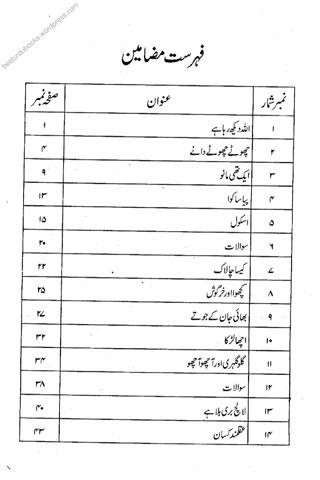 besturdubooks.wordpress.com
فہرست مضامین
نمبر شمار عنوان صفحہ نمبر
۱ اللہ دیکھ رہا ہے ۱
۲ چھوٹے چھوٹے دانے ۴
۳ ایک تھی مانو ۹
۴ پیاسا کوا ۱۳
۵ اسکول ۱۵
۶ سوالات ۲۰
۷ کیسا چالاک ۲۲
۸ کچھوا اور خرگوش ۲۵
۹ بھائی جان کے جوتے ۲۷
۱۰ اچھا لڑکا ۳۲
۱۱ گلو گلہری اور آچھو آچھو ۳۴
۱۲ سوالات ۳۸
۱۳ لالچ بری بلا ہے ۴۰
۱۴ عقلمند کسان ۴۳